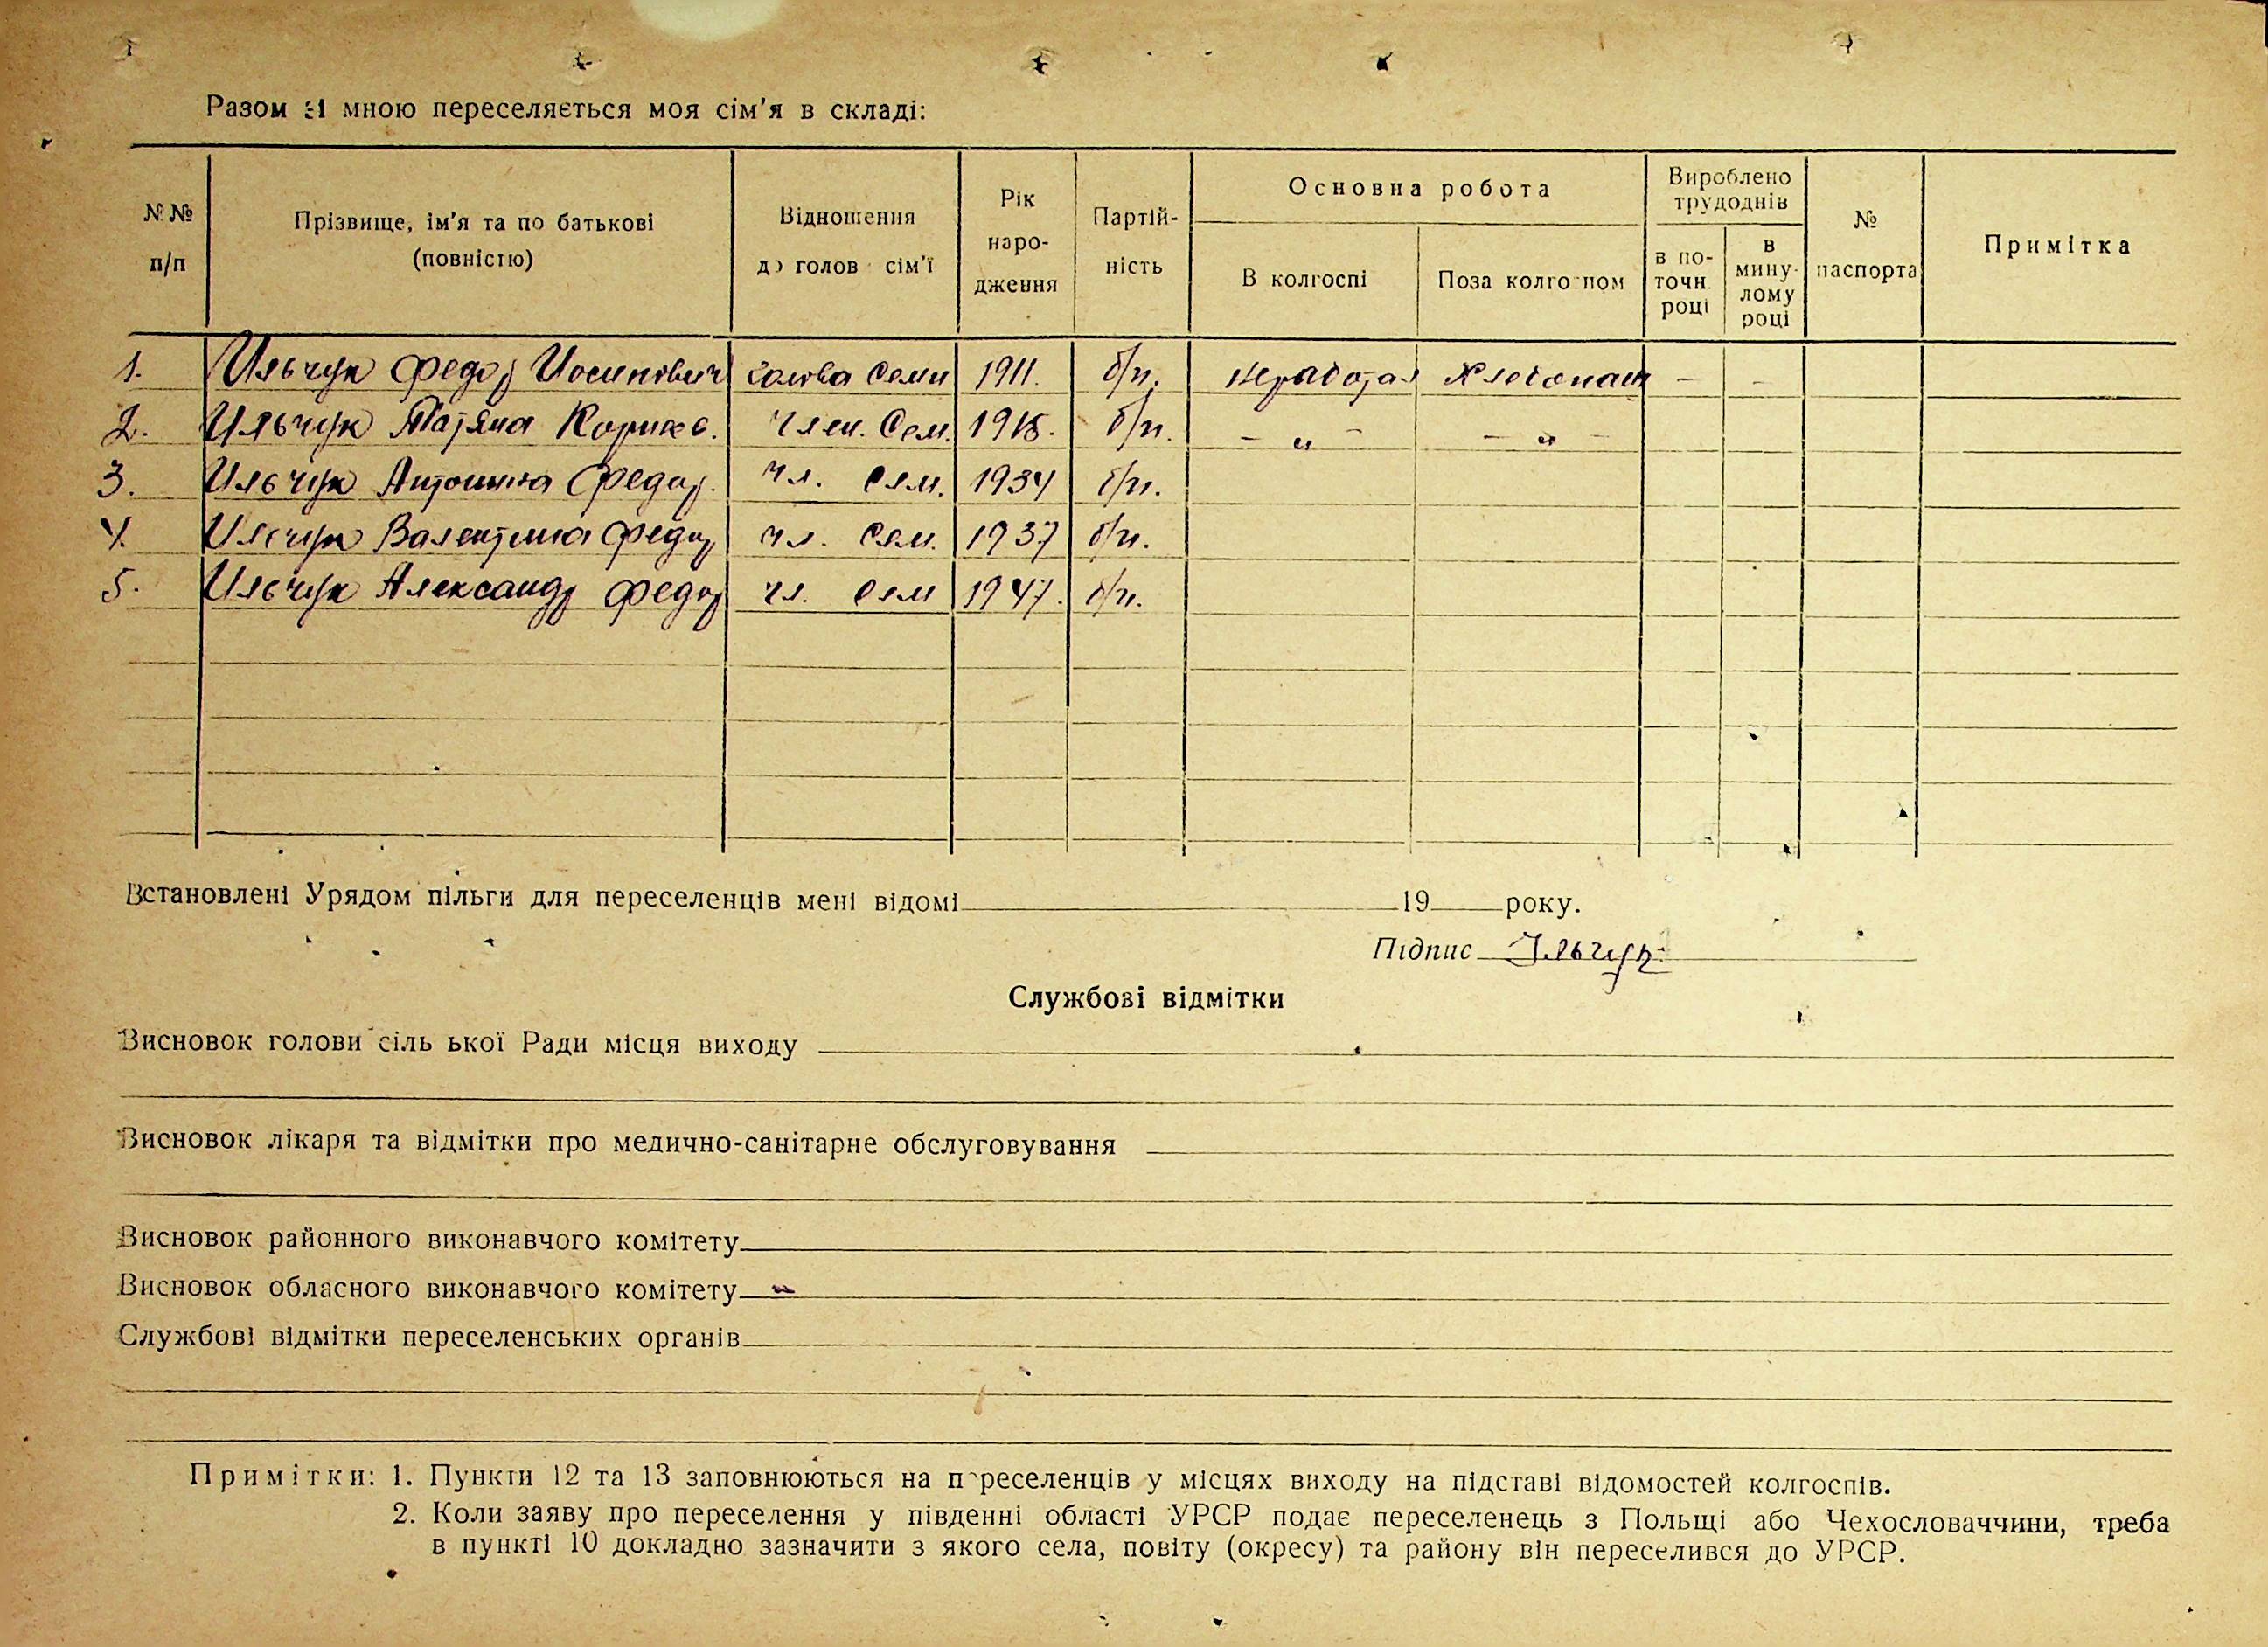 Разом зі мною переселяється моя сім'я в складі:
№№ п/п
Прізвище, ім'я та по батькові (повністю)
Відношення до голов сім'ї
Рік народження
Партій-ність
Основна робота
В колгоспі
Поза колгоспом
Вироблено трудоднів
в по-точн. році
в мину-лому році
№ паспорта
Примітка
1. Ильчук Федор Иосипович голова семи 1911. б/п. неработал Хлебопаш – –
2. Ильчук Татяна Корнее. член. Сем. б/п. – „ – – „ –
3. Ильчук Антонина Федор. чл. сем. 1934 б/п.
4. Ильчук Валентина Федор чл. сем. 1937 б/п.
5. Ильчук Александр Федор чл. сем 1947. б/п.
Встановлені Урядом пільги для переселенців мені відомі 19 року.
Підпис Ільчук
Службові відмітки
Висновок голови сільської Ради місця виходу
Висновок лікаря та відмітки про медично-санітарне обслуговування
Висновок районного виконавчого комітету
Висновок обласного виконавчого комітету
Службові відмітки переселенських органів
Примітки: 1. Пункти 12 та 13 заповнюються на переселенців у місцях виходу на підставі відомостей колгоспів.
2. Коли заяву про переселення у південні області УРСР подає переселенець з Польщі або Чехословаччини, треба
в пункті 10 докладно зазначити з якого села, повіту (окресу) та району він переселився до УРСР.